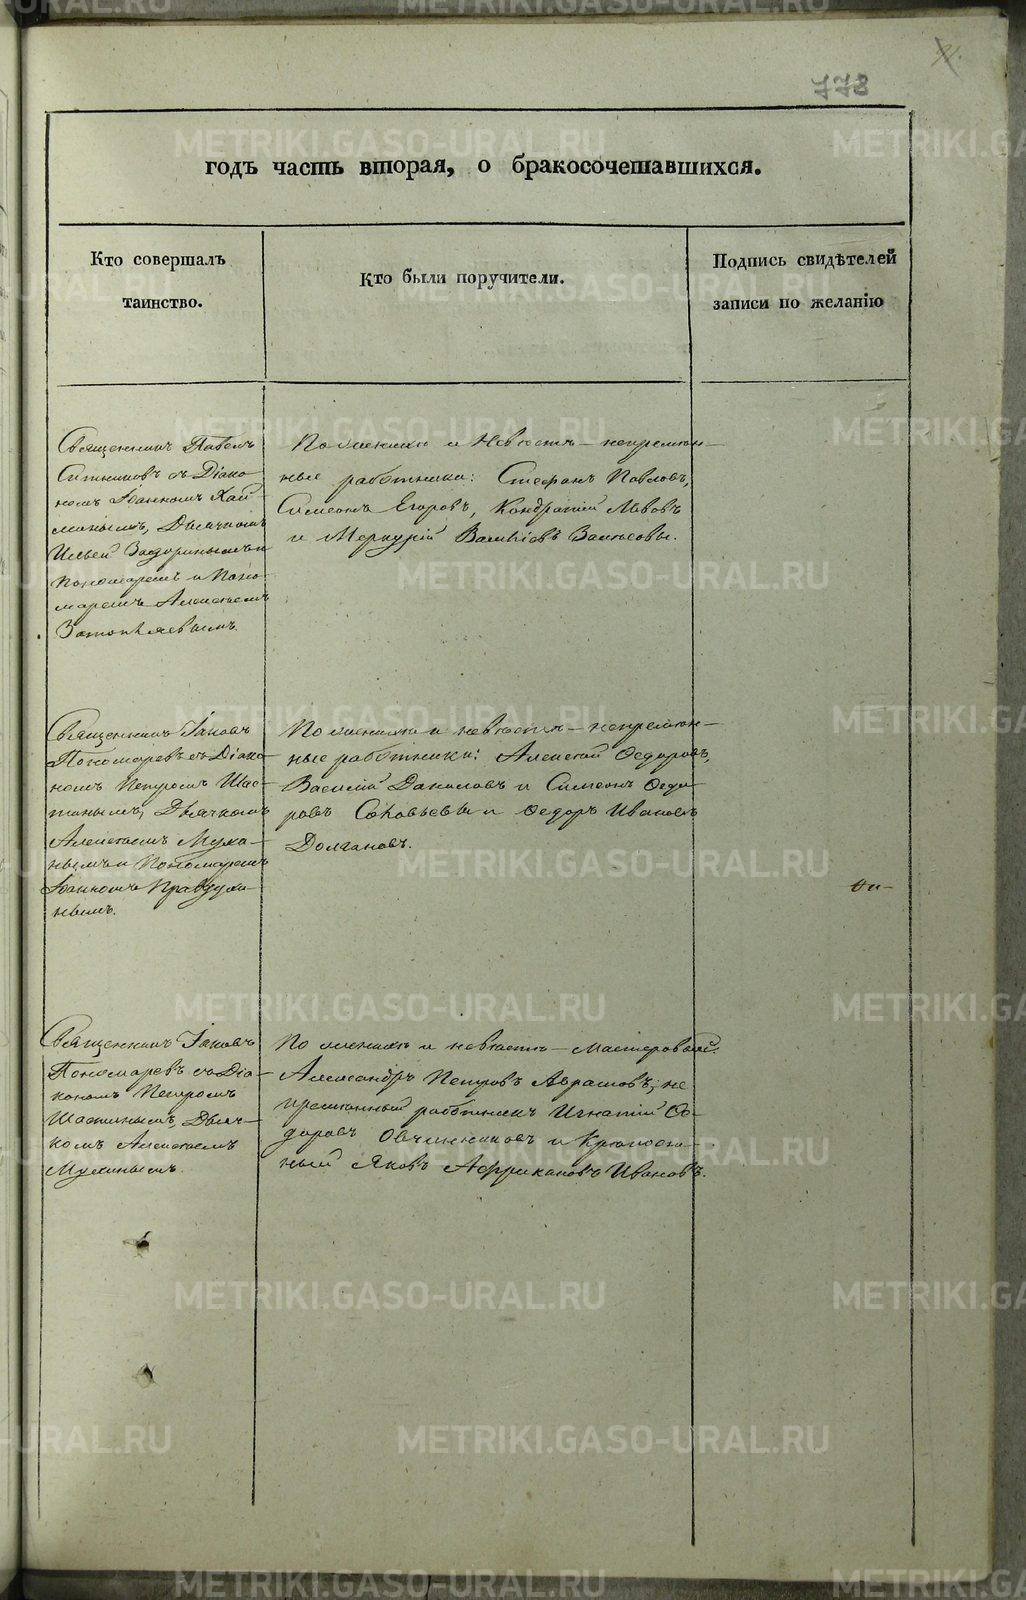 778
годъ часть вторая, о бракосочетавшихся.
Кто совершалъ
таинство.
Кто были поручители.
Подпись свидѣтелей
записи по желанію
Священникъ Павелъ
Ситниковъ съ Діако-
номъ Іоанномъ Хай-
Дьячкомъ
Ильей
Пономаремъ и Поно-
маремъ Алексѣемъ
По женихѣ и невѣстѣ – непремѣн-
ные работники: Стефанъ Павловъ,
Симеонъ Егоровъ, Кондратій Львовъ
и Меркурій
Священникъ Іаковъ
Пономаревъ съ Діако-
номъ Петромъ Шас-
тинымъ, Дьячкомъ
Алексѣемъ Мухи-
нымъ и Пономаремъ
Іоанномъ Правдухи-
нымъ.
По женихѣ и невѣстѣ – непремѣн-
ные работники: Алексѣй Ѳедоровъ,
Василій Даниловъ и Симеонъ Ѳедо-
ровъ Соловьевы и Ѳедоръ Ивановъ
Долгановъ.
Священникъ Іаковъ
Пономаревъ съ Діа-
кономъ Петромъ
Шастинымъ, Дьяч-
комъ Алексѣемъ
Мухинымъ.
По женихѣ и невѣстѣ – Мастеровой
Александръ Петровъ Аврамовъ, не
премѣнный работникъ Игнатій Ѳе-
доровъ Овчинниковъ и Крѣпост-
ный Яковъ Африкановъ Ивановъ.
METRIKI.GASO-URAL.RU